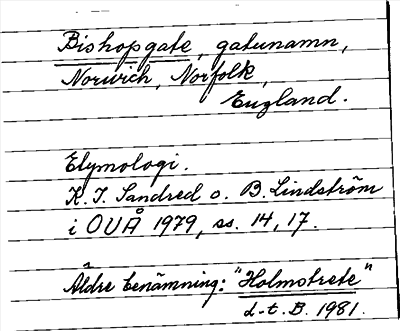 Bishopgate, gatunamn,
Norwich, Norfolk,
England.
Etymologi.
K. I. Sandred o. B. Lindström
i OUÅ 1979, ss. 14, 17.
Äldre benämning: "Holmstrete"
L-t. B. 1981.